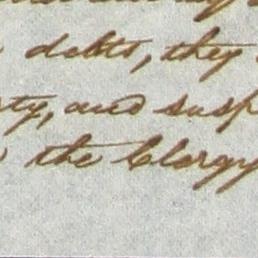 debts, they
ty, and susp
the Clergy